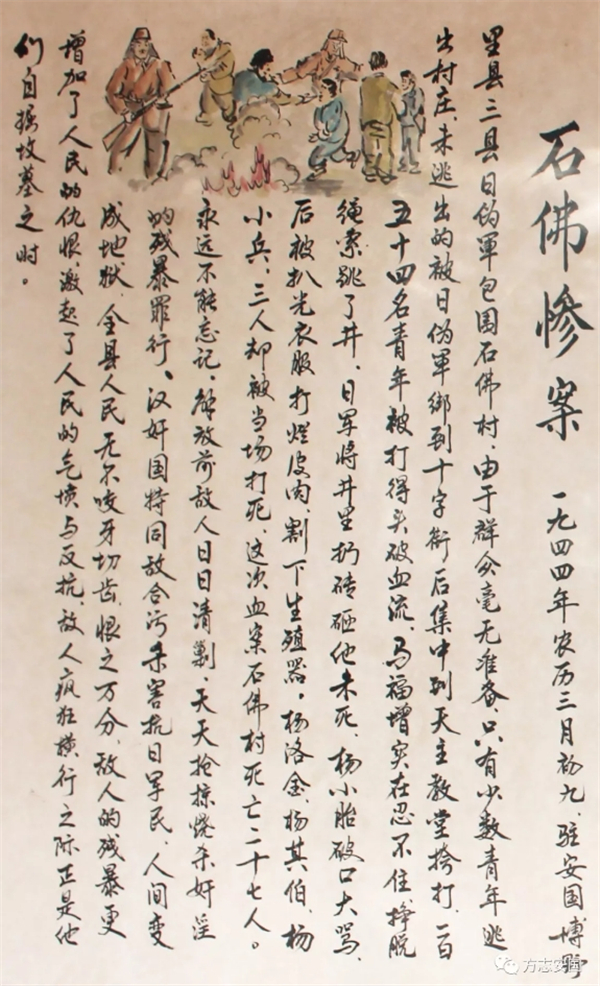 石佛惨案
一九四四年农历三月初九,驻安国博野
里县三县日伪軍包围石佛村,由于群众毫无准备,只有少数青年逃
出村庄,未逃出的被日伪軍绑到十字街后集中到天主教堂拷打,一百
五十四名青年被打得头破血流,马福增实在忍不住,挣脱
绳索跳了井,日军将井里扔砖砸他未死,杨小胎破口大骂,
后被扒光衣服打烂皮肉,割下生殖器,杨洛金、杨其伯、杨
小兵,三人却被当场打死,这次血案石佛村死亡二十七人。
永远不能忘记,解放前敌人日日清剿,天天抢掠烧杀奸淫
的残暴罪行,汉奸国特同敌合污杀害抗日军民,人间变
成地狱,全县人民无不咬牙切齿,恨之万分,敌人的残暴更
增加了人民的仇恨,激起了人民的气愤与反抗,敌人疯狂横行之际正是他
们自掘坟墓之时。
方志安国